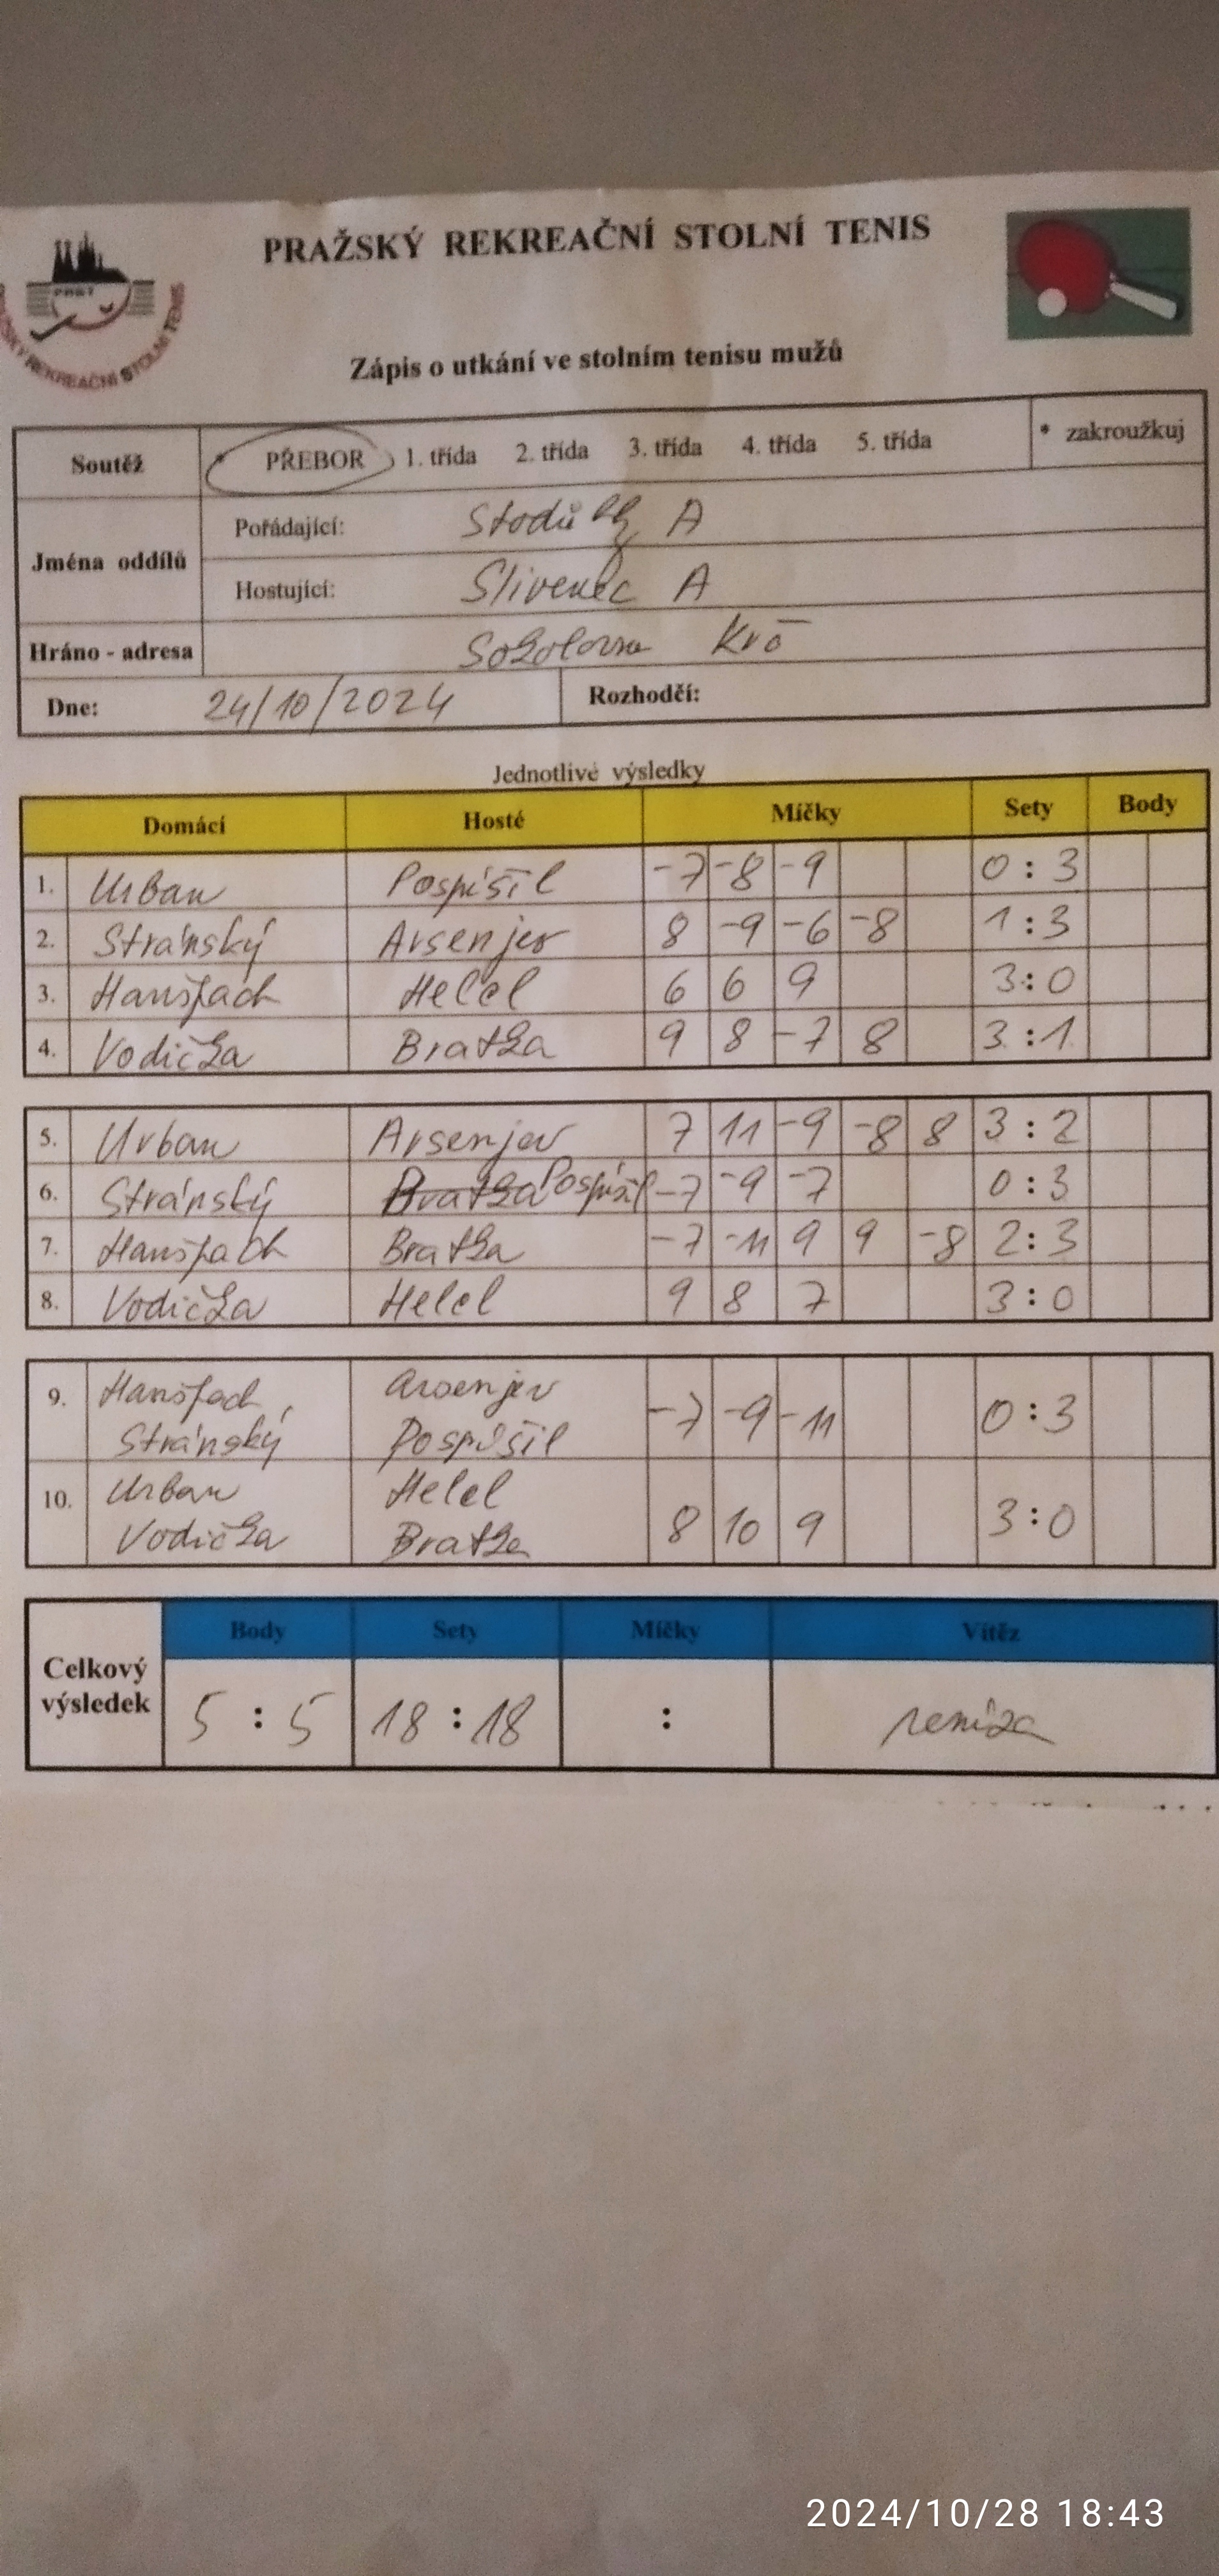 PRAŽSKÝ REKREAČNÍ STOLNÍ TENIS
PRST
PRAŽSKÝ REKREAČNÍ STOLNÍ TENIS
Zápis o utkání ve stolním tenisu mužů
Soutěž * PŘEBOR 1. třída 2. třída 3. třída 4. třída 5. třída * zakroužkuj
Jména oddílů
Pořádající: Stodůlky A
Hostující: Slivenec A
Hráno - adresa Sokolovna Krč
Dne: 24/10/2024 Rozhodčí:
Jednotlivé výsledky
Domácí Hosté Míčky Sety Body
1. Urban Pospíšil -7 -8 -9 0 : 3
2. Stránský Arsenjev 8 -9 -6 -8 1 : 3
3. Hanšpach Helel 6 6 9 3 : 0
4. Vodička Bratka 9 8 -7 8 3 : 1
5. Urban Arsenjev 7 11 -9 -8 8 3 : 2
6. Stránský Bratka Pospíšil -7 -9 -7 0 : 3
7. Hanšpach Bratka -7 -11 9 9 -8 2 : 3
8. Vodička Helel 9 8 7 3 : 0
9. Hanšpach, Arsenjev
Stránský Pospíšil -7 -9 -11 0 : 3
10. Urban Helel
Vodička Bratka 8 10 9 3 : 0
Celkový výsledek
Body Sety Míčky Vítěz
5 : 5 18 : 18 : remiza
2024/10/28 18:43